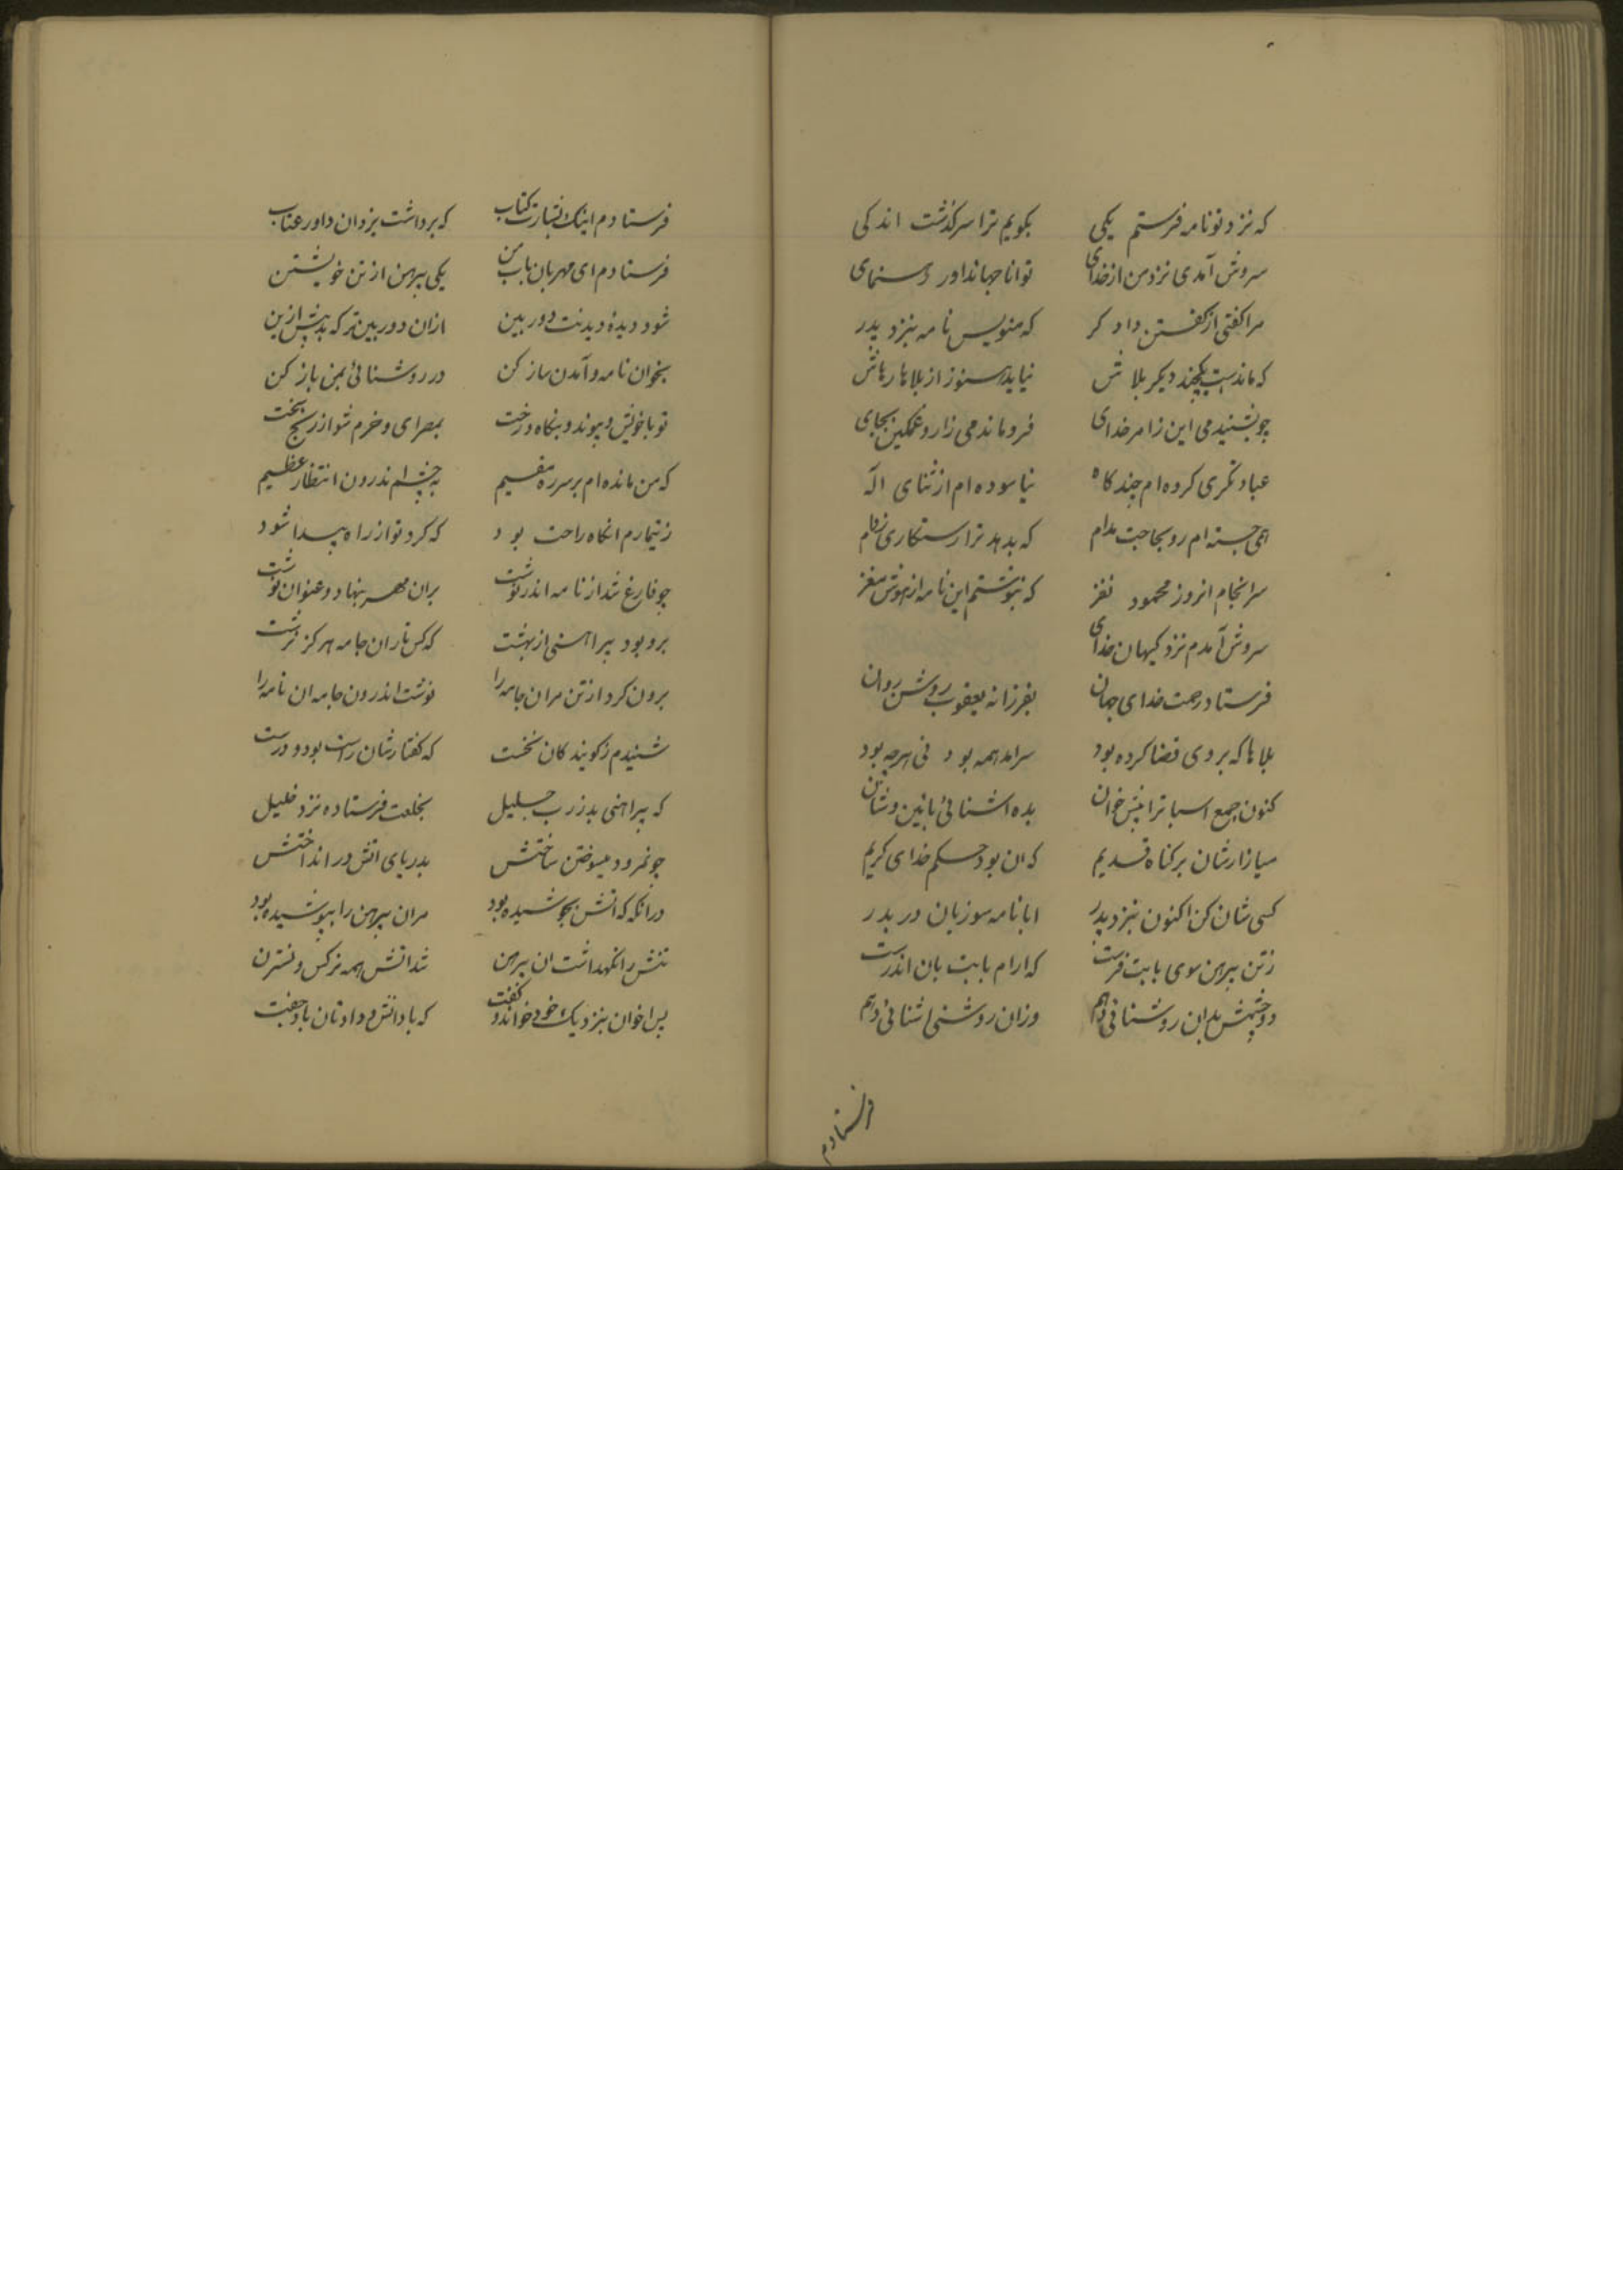 که نزد تو نامه فرستم یکی بکویم ترا سرکذشت اندکی
سروش آمدی نزد من از خدای توانا جهاندار رهنمای
مرا کفتی از کفتن دادکر که منویس نامه بنزد پدر
که ماندست یکچند دیکر بلاش نیاید هنوز از بلاها رهاش
چو بشنیدمی این ز امر خدای فرو ماندمی زار و غمکین بجای
عبادتکری کرده ام چند کاه نیاسوده ام از ثنای اله
همی جسته ام رو بحاجت مدام که بدهد ترا رستکاری ز دام
سرانجام انروز محمود نغز که بنوشتم این نامه از هوش مغز
سروش آمدم نزد کیهان خدای
فرستاد رحمت خدای جهان بفرزانه یعقوب روشن روان
بلاها که بر وی قضا کرده بود سرامد همه بود فی هرچه بود
کنون جمع اسباترا پیش خوان بده اشنائی بایین و شان
میازارشان بر کناه قدیم که ان بود حکم خدای کریم
کسی شان کن اکنون بنزد پدر ابا نامه سوزیان در بدر
ز تن پیرهن سوی بابت فرست که ارام بابت بان اندرست
دو چشمش بدان روشنائی دهم وزان روشنی اشنائی دهم
فرستادم
فرستادم اینک بشارت کتاب که برداشت یزدان داور عتاب
فرستادم ای مهربان باب من یکی پیرهن از تن خویشتن
شود دیدهٔ دیدنت دوربین ازان دوربین تر که بد پیش ازین
بخوان نامه و آمدن ساز کن در روشنائی بمن باز کن
تو با خویش و پیوند و بنکاه و رخت بمصر ای و خرم شو از رنج سخت
که من مانده ام بر سر ره مقیم بچشم اندرون انتظار عظیم
ز تیمارم انکاه راحت بود که کرد تو از راه پیدا شود
چو فارغ شد از نامه اندر نوشت بران مهر بنهاد و عنوان نوشت
برو بود پیراهنی از بهشت که کس تار ان جامه هرکز نرشت
برون کرد از تن مران جامه را نوشت اندرون جامه ان نامه را
شنیدم ز کویندکان نخست که کفتارشان راست بود و درست
که پیراهنی بد ز رب جلیل بخلعت فرستاده نزد خلیل
چو نمرود میسوختن ساختش بدریای اتش در انداختش
درانکه که اتش بجوشیده بود مران پیرهن را بپوشیده بود
تنش را نکهداشت ان پیرهن شد اتش همه نرکس و نسترن
پس اخوان بنزدیک خود خواند و کفت که با دانش و دادتان باد جفت